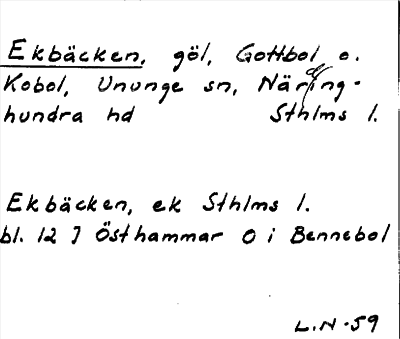 Ekbäcken, göl, Gottbol o.
Kobol, Ununge sn, Näring-
hundra hd Sthlms l.
Ekbäcken, ek Sthlms l.
bl. 12 J Östhammar O i Bennebol
L.N-59